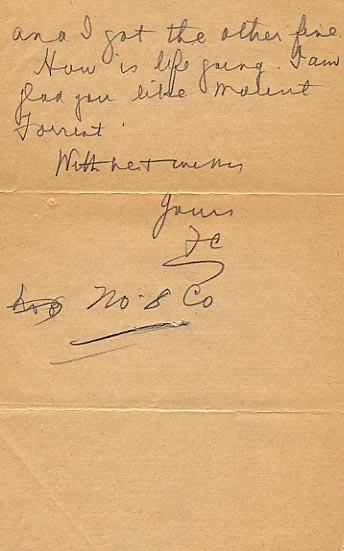 and I got the other fine.
How is life going. I am
glad you like Mount
Forrest.
With best wishes
Yours
JC
No. 8 Co